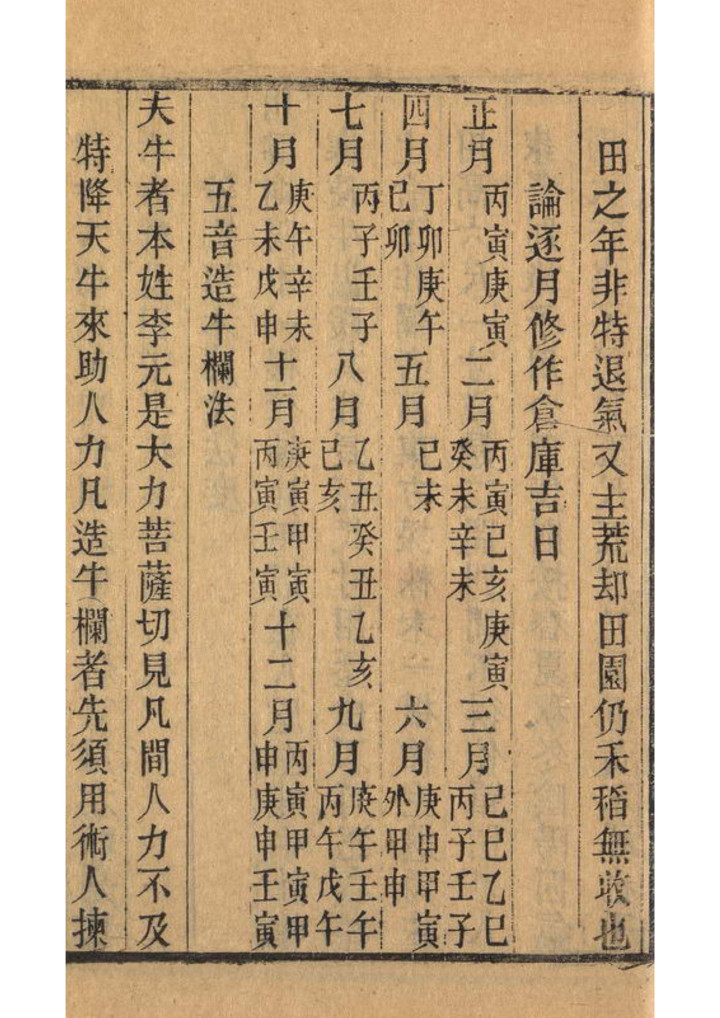 田之年非特退氣又主荒却田園仍禾稻無收也
論逐月修作倉庫吉日
正月丙寅庚寅二月丙寅己亥庚寅癸未辛未三月己巳乙巳丙子壬子
四月丁卯庚午己卯五月己未六月庚申甲寅外甲申
七月丙子壬子八月乙丑癸丑乙亥己亥九月庚午壬午丙午戊午
十月庚午辛未乙未戊申十一月庚寅甲寅丙寅壬寅十二月丙寅甲寅甲申庚申壬寅
五音造牛欄法
夫牛者本姓李元是大力菩薩切見凡間人力不及
特降天牛來助人力凡造牛欄者先須用術人揀